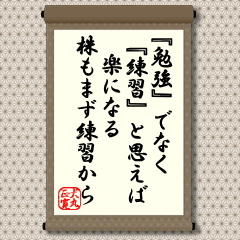 『勉強』でなく
『練習』と思えば
楽になる
株もまず練習から